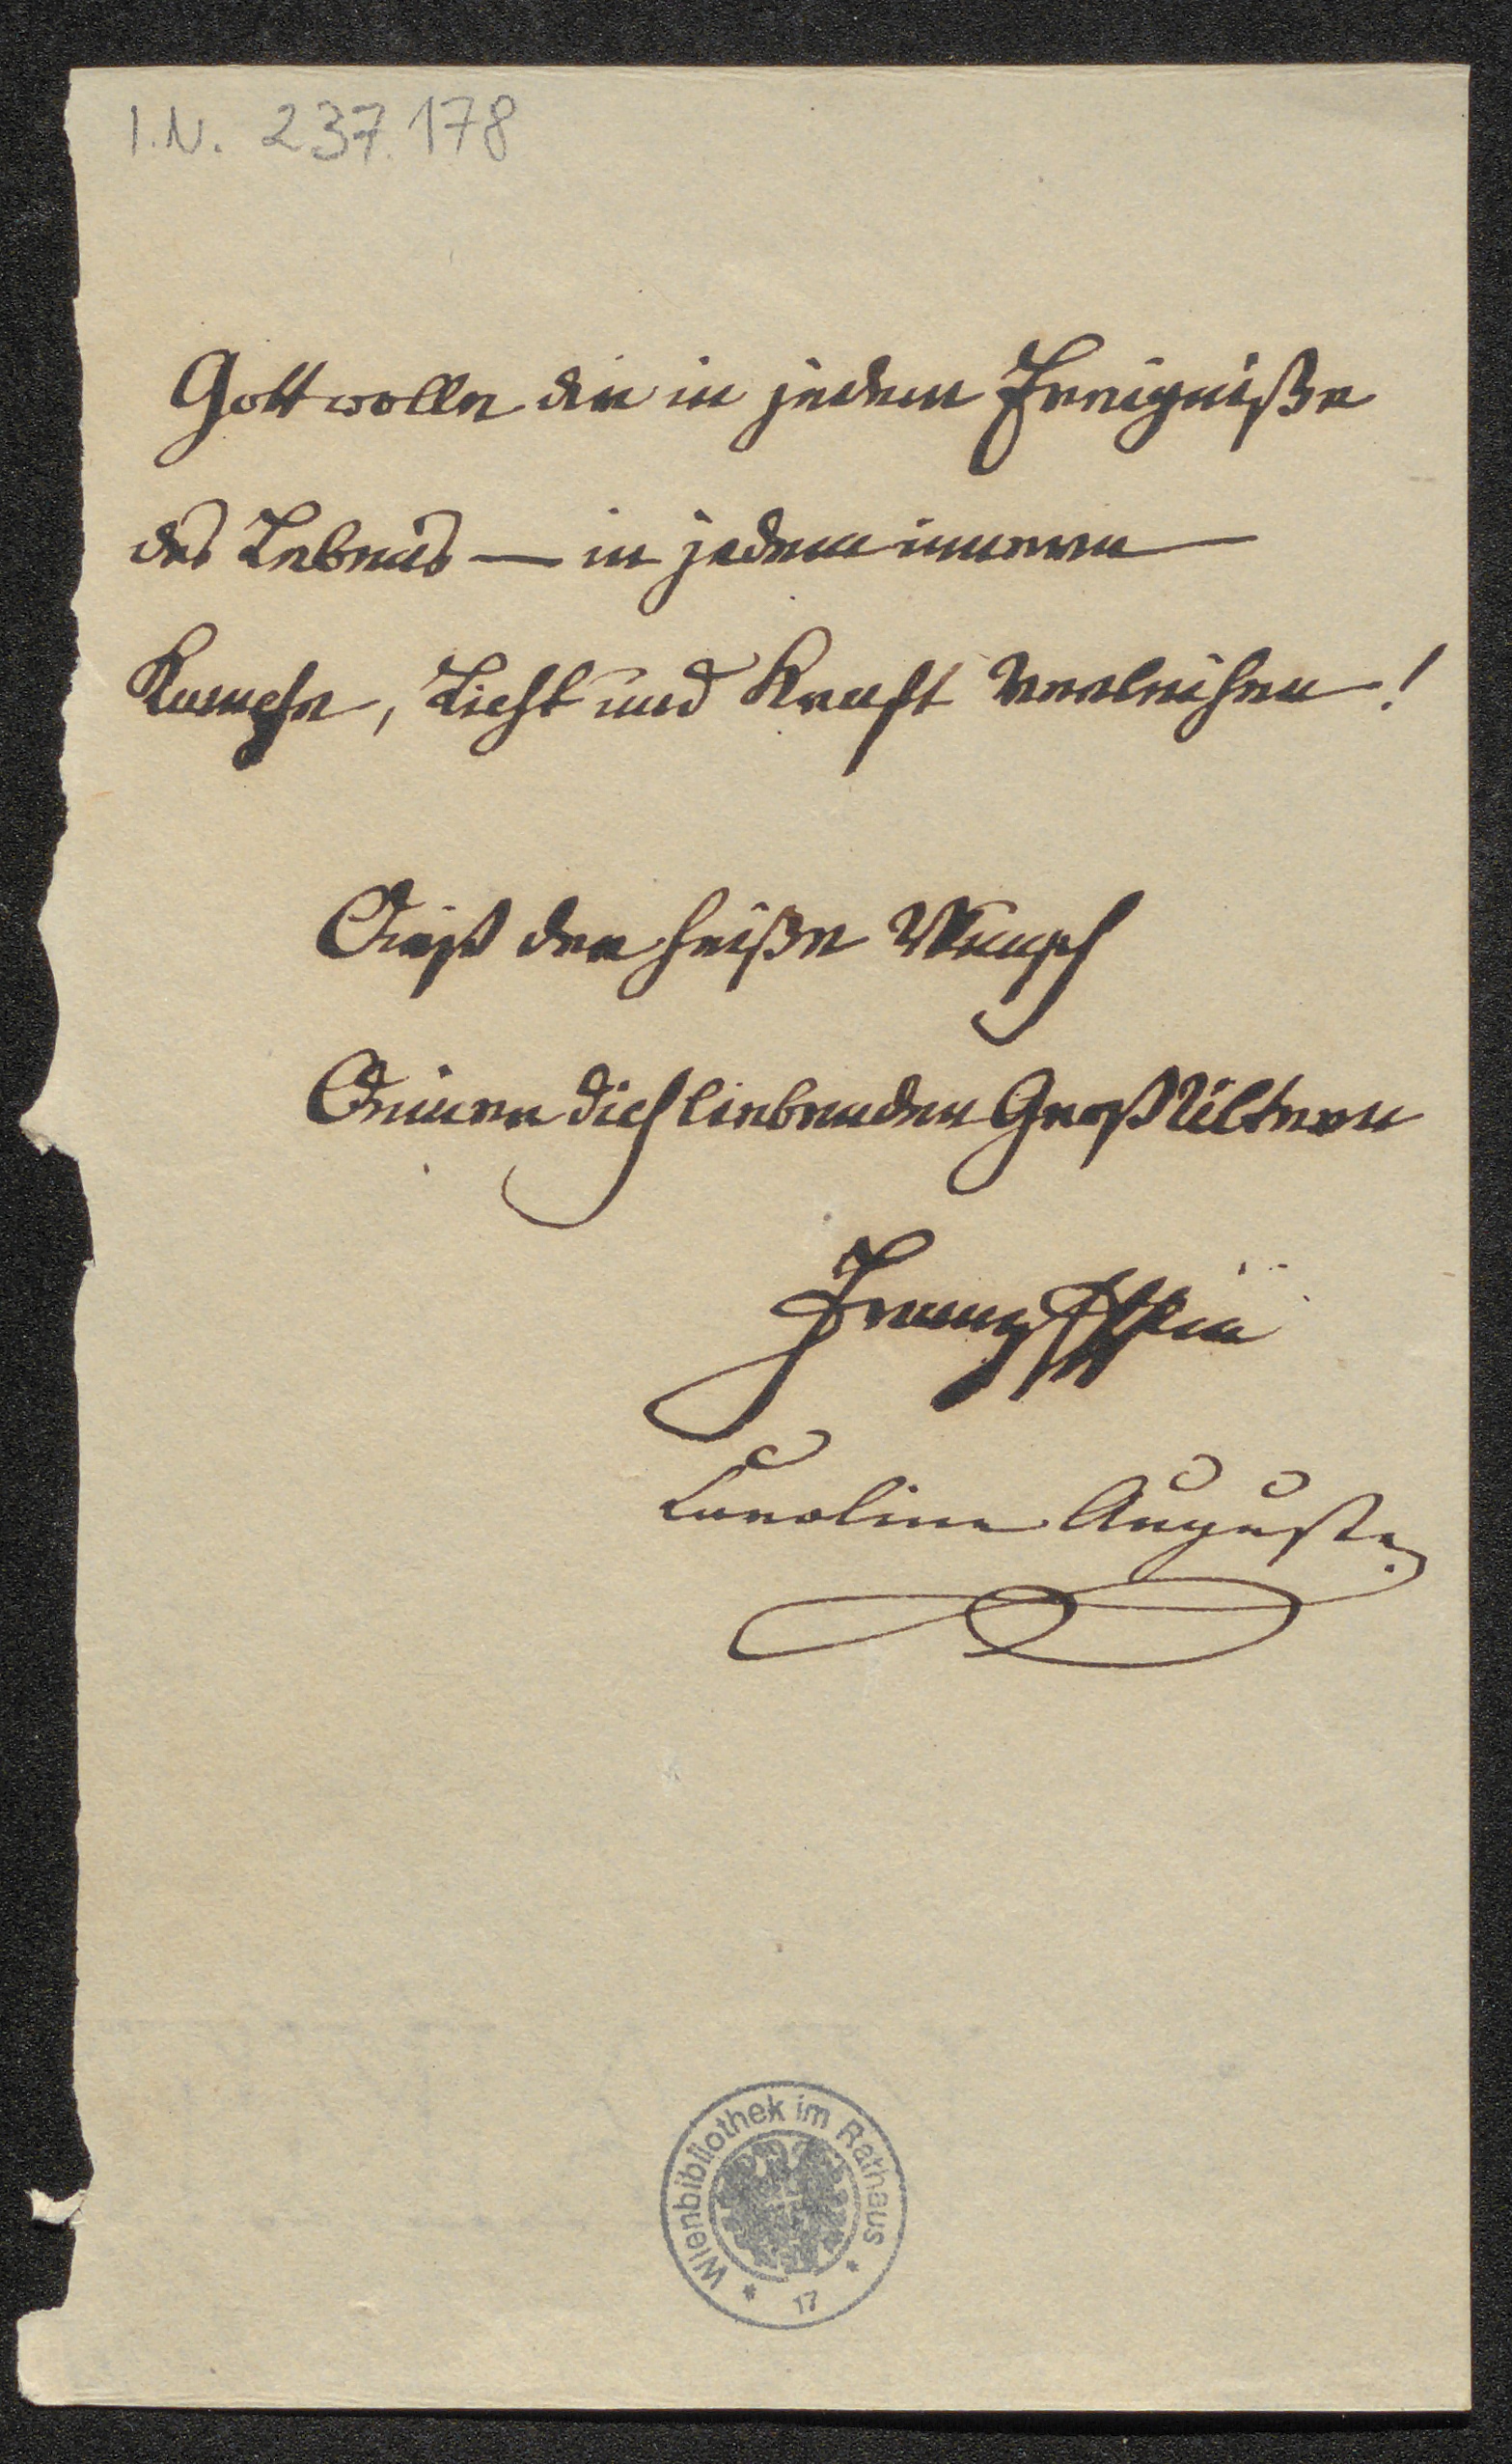 I.N. 237.178
Gott wolle dir in jedem Ereigniße
des Lebens — in jedem inneren
Kampfe, Licht und Kraft verleihen!
Dieß der heiße Wunsch
Deiner dich liebenden Großältern
Franz
Caroline Auguste
Wienbibliothek im Rathaus
* 17 *